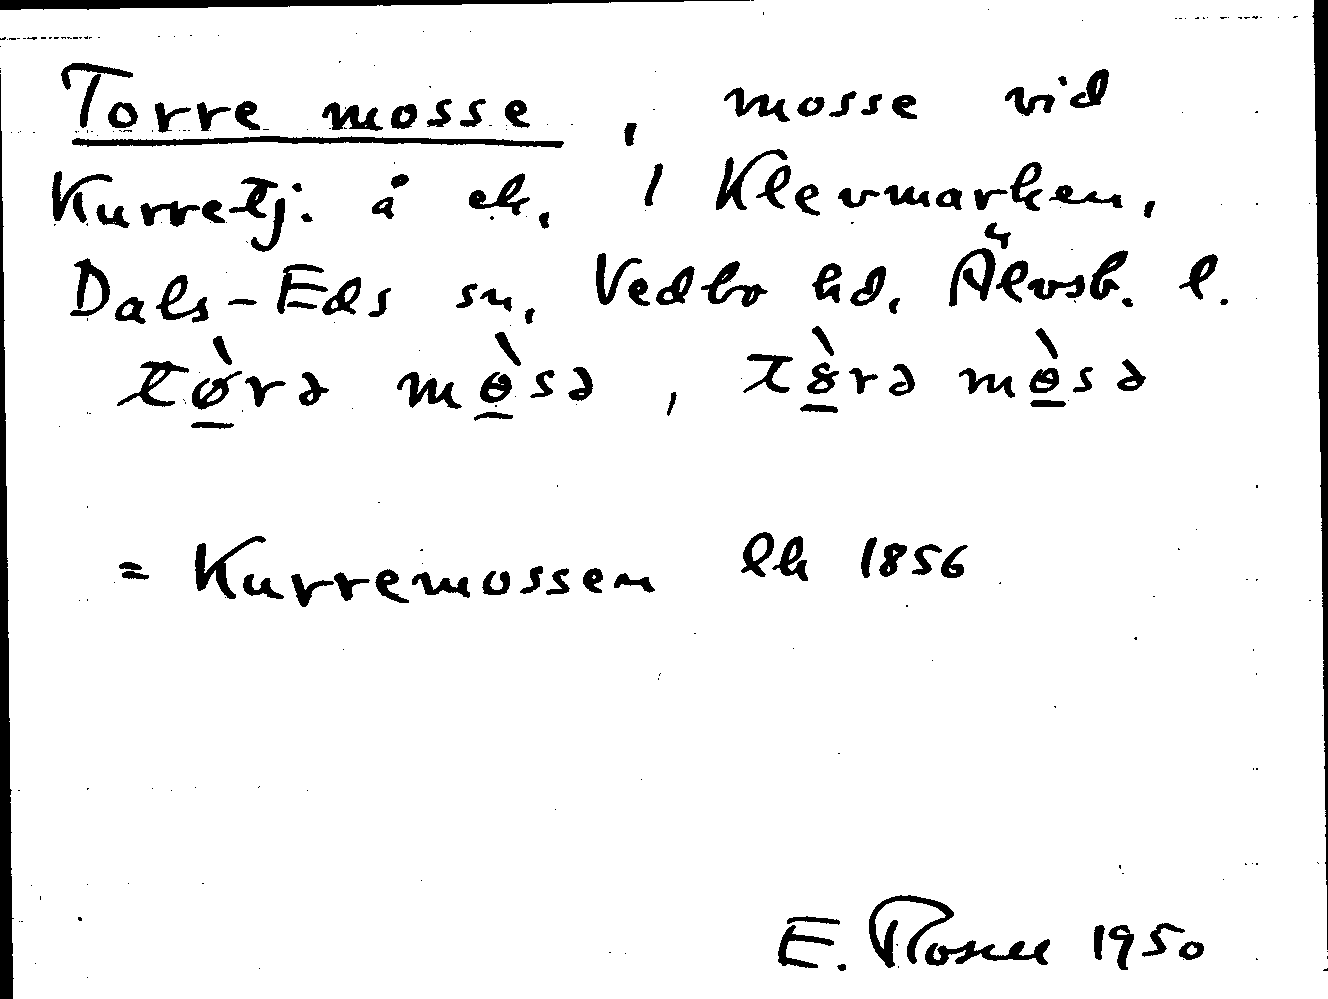 Torre mosse, mosse vid
Kurretj. å ek. / Klevmarken,
Dals-Eds sn, Vedbo hd, Älvsb. l.
tø̀rə mɵ̀sə, tȣ̀rə mɵ̀sə
= Kurremossen lk 1856
E. Rosell 1950